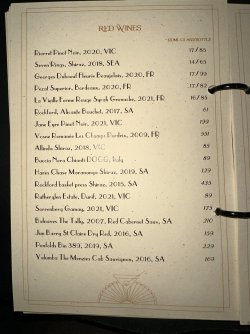 RED WINES
Riverst Pinot Noir, 2020, VIC 17/85
Seven Rings, Shiraz, 2018, SEA 14/65
Georges Duboeuf Fleurie Beaujolais, 2020, FR 17/95
Pezat Superior, Bordeaux, 2020, FR 17/82
La Vieille Ferme Rouge Syrah Grenache, 2021, FR 16/85
Rockford, Alicante Bouchet, 2017, SA 61
Jane Eyre Pinot Noir, 2021, VIC 199
Vosne Romanée Les Champs Perdrix, 2009, FR 551
Shiraz, 2018, VIC 85
Baccio Nero Chianti DOCG, Italy 89
Haris Chase Marananga Shiraz, 2019, SA 129
Rockford basket press Shiraz, 2015, SA 435
Rutherglen Estate, Durif, 2021, VIC 89
Sorrenberg Gamay, 2021, VIC 175
Balnaves The Tally, 2007, Red Cabernet Sauv, SA 210
Jim Barry St Claire Dry Red, 2016, SA 159
Penfolds Bin 389, 2019, SA 229
Yalumba The Menzies Cab Sauvignon, 2016, SA 169